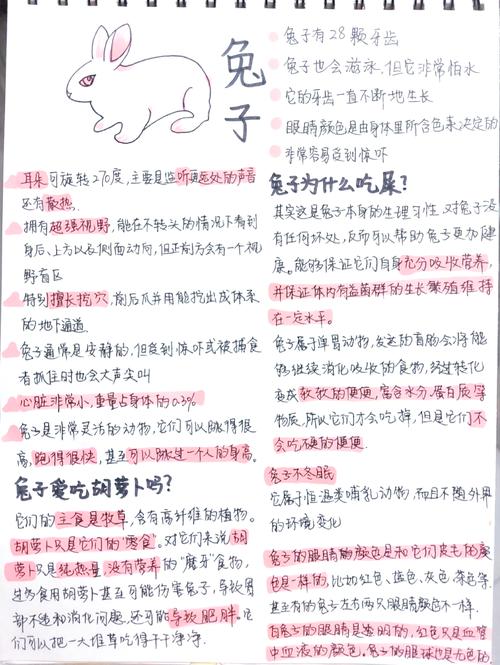 兔子
兔子有28颗牙齿
兔子也会游泳,但它非常怕水
它的牙齿一直不断地生长
眼睛颜色是由身体里所含色素决定的
非常容易受到惊吓
耳朵可旋转270度,主要是监听远处的声音
还有散热.
拥有超强视野,能在不转头的情况下看到
身后、上方以及侧面动向,但正前方会有一个视
野盲区
特别擅长挖穴,前后爪并用能挖出成体系
的地下通道.
兔子通常是安静的,但受到惊吓或被捕食
者抓住时也会大声尖叫
心脏非常小,重量占身体的0.3%
兔子是非常灵活的动物,它们可以跳得很
高,跑得很快,甚至可以跳过一个人的身高。
兔子爱吃胡萝卜吗?
它们的主食是牧草,含有高纤维的植物。
胡萝卜只是它们的"零食"。对它们来说胡
萝卜只是纯热量,没有营养的"磨牙"食物,
过多食用胡萝卜甚至可能伤害兔子,导致胃
部不适和消化问题,还可能导致肥胖。它
们可以把一大堆草吃得干干净净.
兔子为什么吃屎?
其实这是兔子本身的生理习性,对兔子没
有任何坏处,反而可以帮助兔子更加健
康。能够保证它们自身充分吸收营养,
并保证体内有益菌群的生长繁殖维持
在一定水平。
兔子属于单胃动物,发达的盲肠会将能
够继续消化吸收的食物,经过转化
变成软软的便便,富含水分、蛋白质等
物质,所以它们才会吃掉,但是它们不
会吃硬的便便.
兔子不冬眠
它属于恒温类哺乳动物,而且不随外界
的环境变化
兔子的眼睛的颜色是和它们皮毛的颜
色是一样的,比如红色、蓝色、灰色、茶色等.
甚至有的兔子左右两只眼睛颜色不一样.
白兔子的眼睛是透明的,红色只是血管
中血液的颜色。兔子的眼球也是无色的